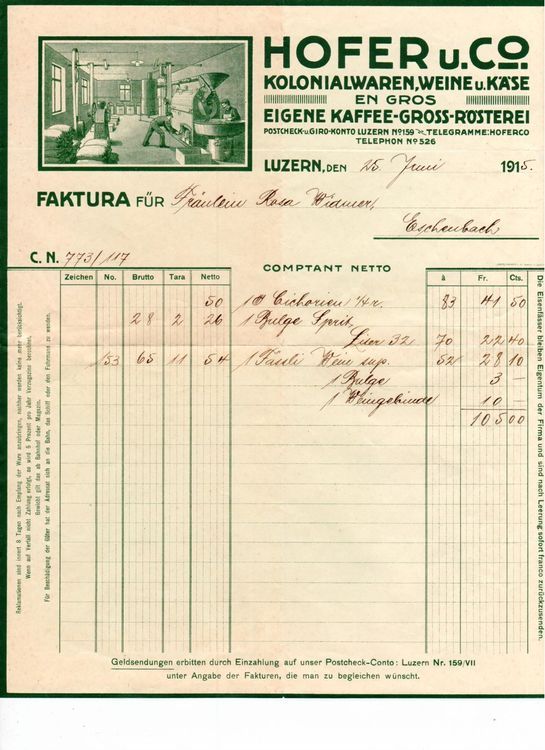 HOFER u. Co.
KOLONIALWAREN, WEINE u. KÄSE
EN GROS
EIGENE KAFFEE-GROSS-RÖSTEREI
POSTCHECK- u. GIRO-KONTO LUZERN No 159 – TELEGRAMME: HOFERCO
TELEPHON No 526
LUZERN, DEN 25. Juni 1915.
FAKTURA FÜR Fräulein Rosa Widmer,
Eschenbach
C. N. 773/117
COMPTANT NETTO
Zeichen No. Brutto Tara Netto à Fr. Cts.
50 1 Cichorien 83 41 50
28 2 26 1 Bulge Sprit,
Liter 32 70 22 40
153 65 11 54 1 Fässli Wein sup. 52 28 10
1 Bulge 3 –
1 Weingebinde 10 –
105 00
Reklamationen sind innert 8 Tagen nach Empfang der Ware anzubringen, nachher werden keine mehr berücksichtigt.
Wenn auf Verfall nicht Zahlung erfolgt, so wird 5 Prozent pro Jahr Verzugszins berechnet.
Gewicht gilt das ab Bahnhof oder Magazin.
Für Beschädigung der Güter hat der Adressat sich an die Bahn, das Schiff oder den Fuhrmann zu wenden.
Die Eisenfässer bleiben Eigentum der Firma und sind nach Leerung sofort franco zurückzusenden.
Geldsendungen erbitten durch Einzahlung auf unser Postcheck-Conto: Luzern Nr. 159/VII
unter Angabe der Fakturen, die man zu begleichen wünscht.